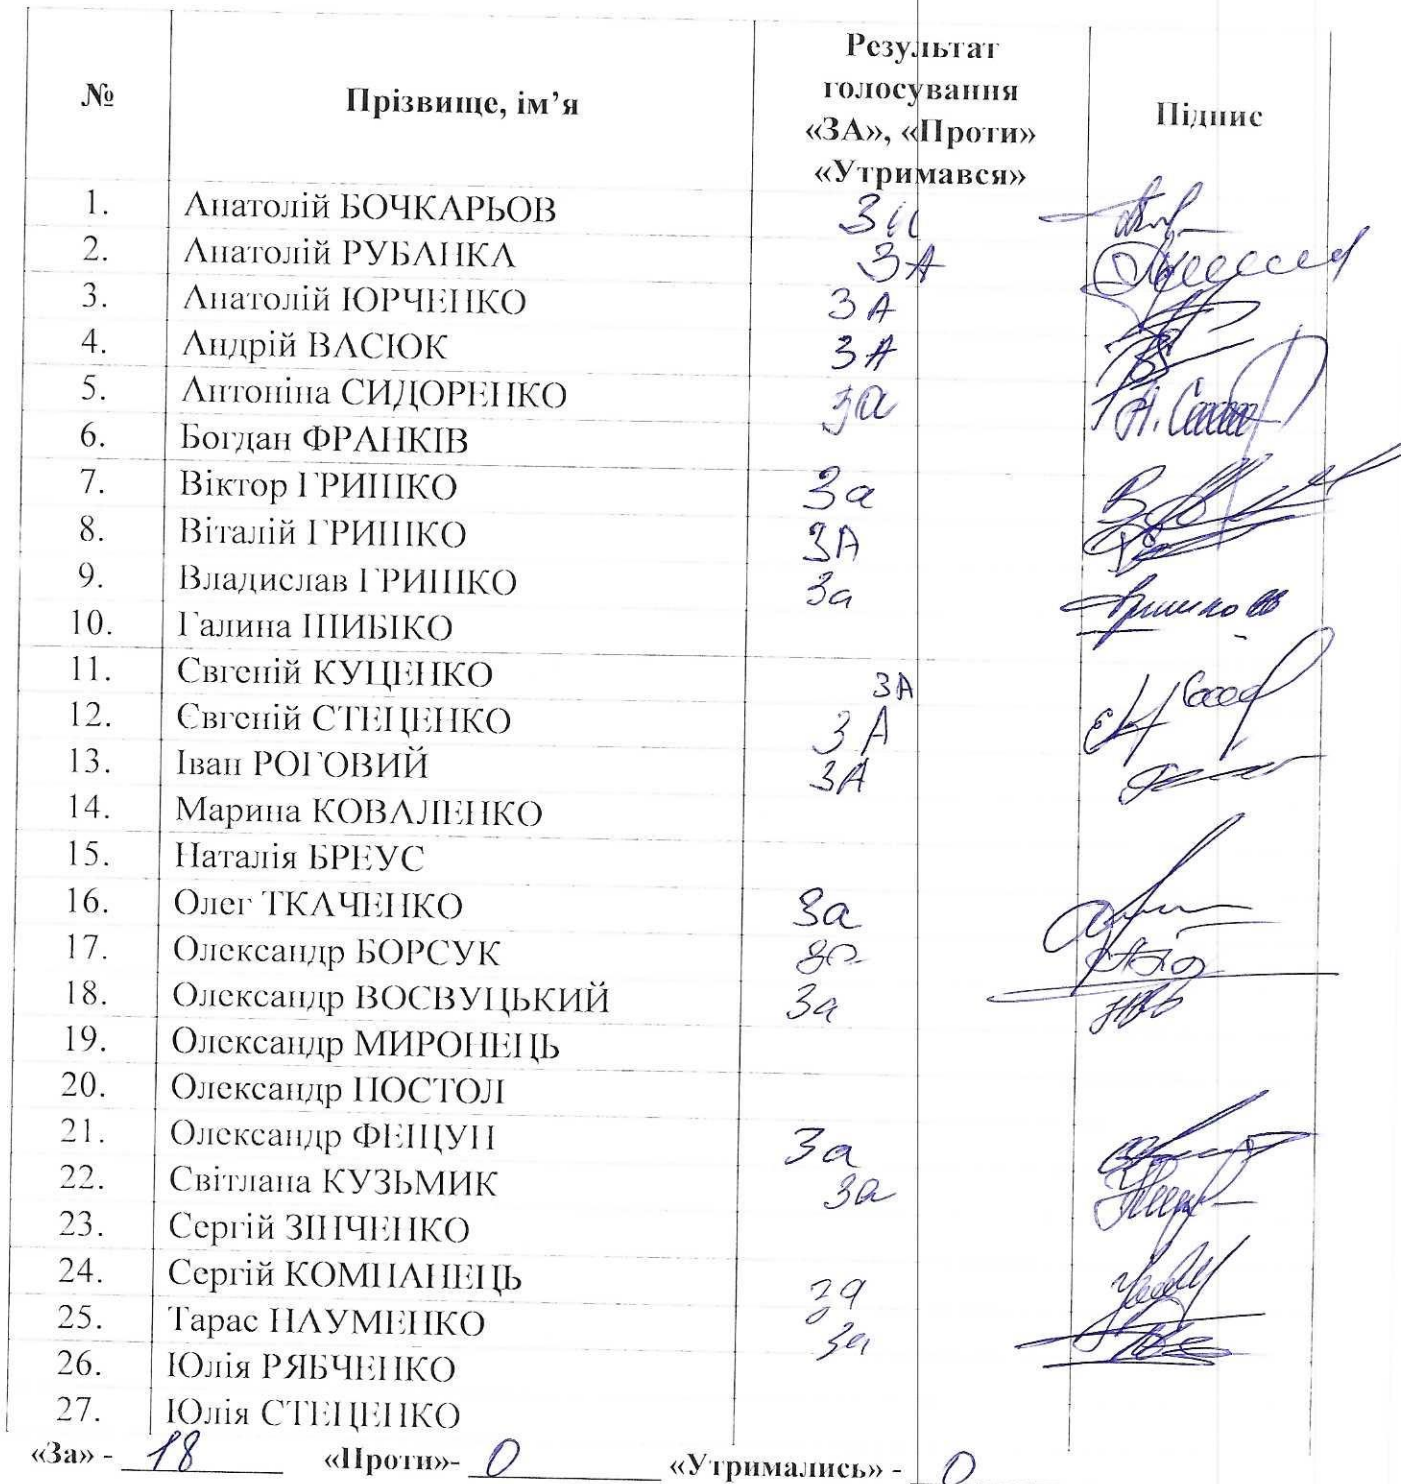 № Прізвище, ім’я Результат голосування «ЗА», «Проти» «Утримався» Підпис
1. Анатолій БОЧКАРЬОВ За
2. Анатолій РУБАНКА ЗА
3. Анатолій ЮРЧЕНКО ЗА
4. Андрій ВАСЮК ЗА
5. Антоніна СИДОРЕНКО За
6. Богдан ФРАНКІВ
7. Віктор ГРИШКО За
8. Віталій ГРИШКО ЗА
9. Владислав ГРИШКО За
10. Галина ШИБІКО
11. Євгеній КУЦЕНКО ЗА
12. Євгеній СТЕЦЕНКО ЗА
13. Іван РОГОВИЙ ЗА
14. Марина КОВАЛЕНКО
15. Наталія БРЕУС
16. Олег ТКАЧЕНКО За
17. Олександр БОРСУК За
18. Олександр ВОЄВУЦЬКИЙ За
19. Олександр МИРОНЕЦЬ
20. Олександр ПОСТОЛ
21. Олександр ФЕЩУН За
22. Світлана КУЗЬМИК За
23. Сергій ЗІНЧЕНКО
24. Сергій КОМПАНЕЦЬ за
25. Тарас НАУМЕНКО За
26. Юлія РЯБЧЕНКО
27. Юлія СТЕЦЕНКО
«За» - 18 «Проти»- 0 «Утримались» - 0